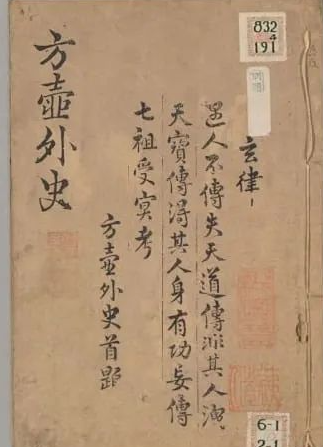 832
4
191
玄律
遇人不傳失天道傳非其人洩
天寶傳得其人身有功妄傳
七祖受冥考
方壺外史首題
方壺外史
6-1
2-1